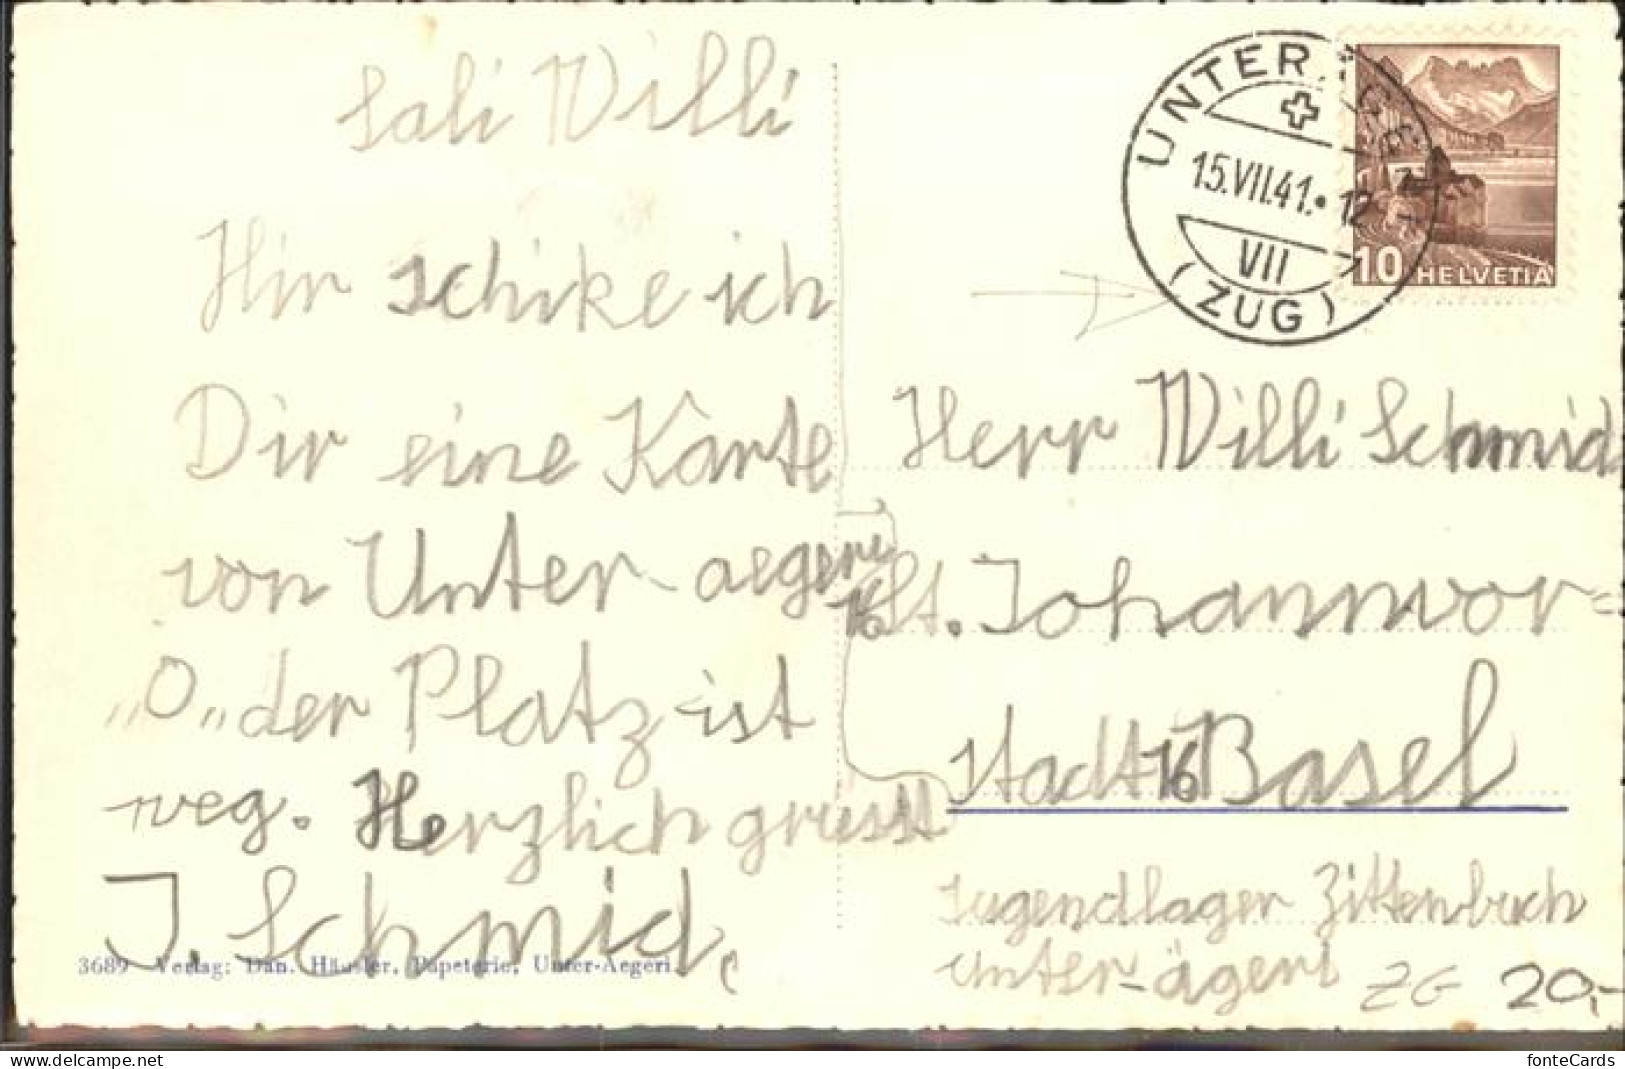 Sali Willi
Hir schike ich
Dir eine Karte
von Unter-aegeri
"O" der Platz ist
weg. Herzlich griesst
J. Schmid.
3689 Verlag: Dan. Häusler, Papeterie, Unter-Aegeri.
UNTER-ÄGERI
15.VII.41.•12
VII
(ZUG)
10 HELVETIA
Herr Willi Schmid
16 St. Johannvor=
stadt 16 Basel
Jugendlager Zittenbuch
Unter-ägeri
ZG 20,-
www.delcampe.net
fonteCards